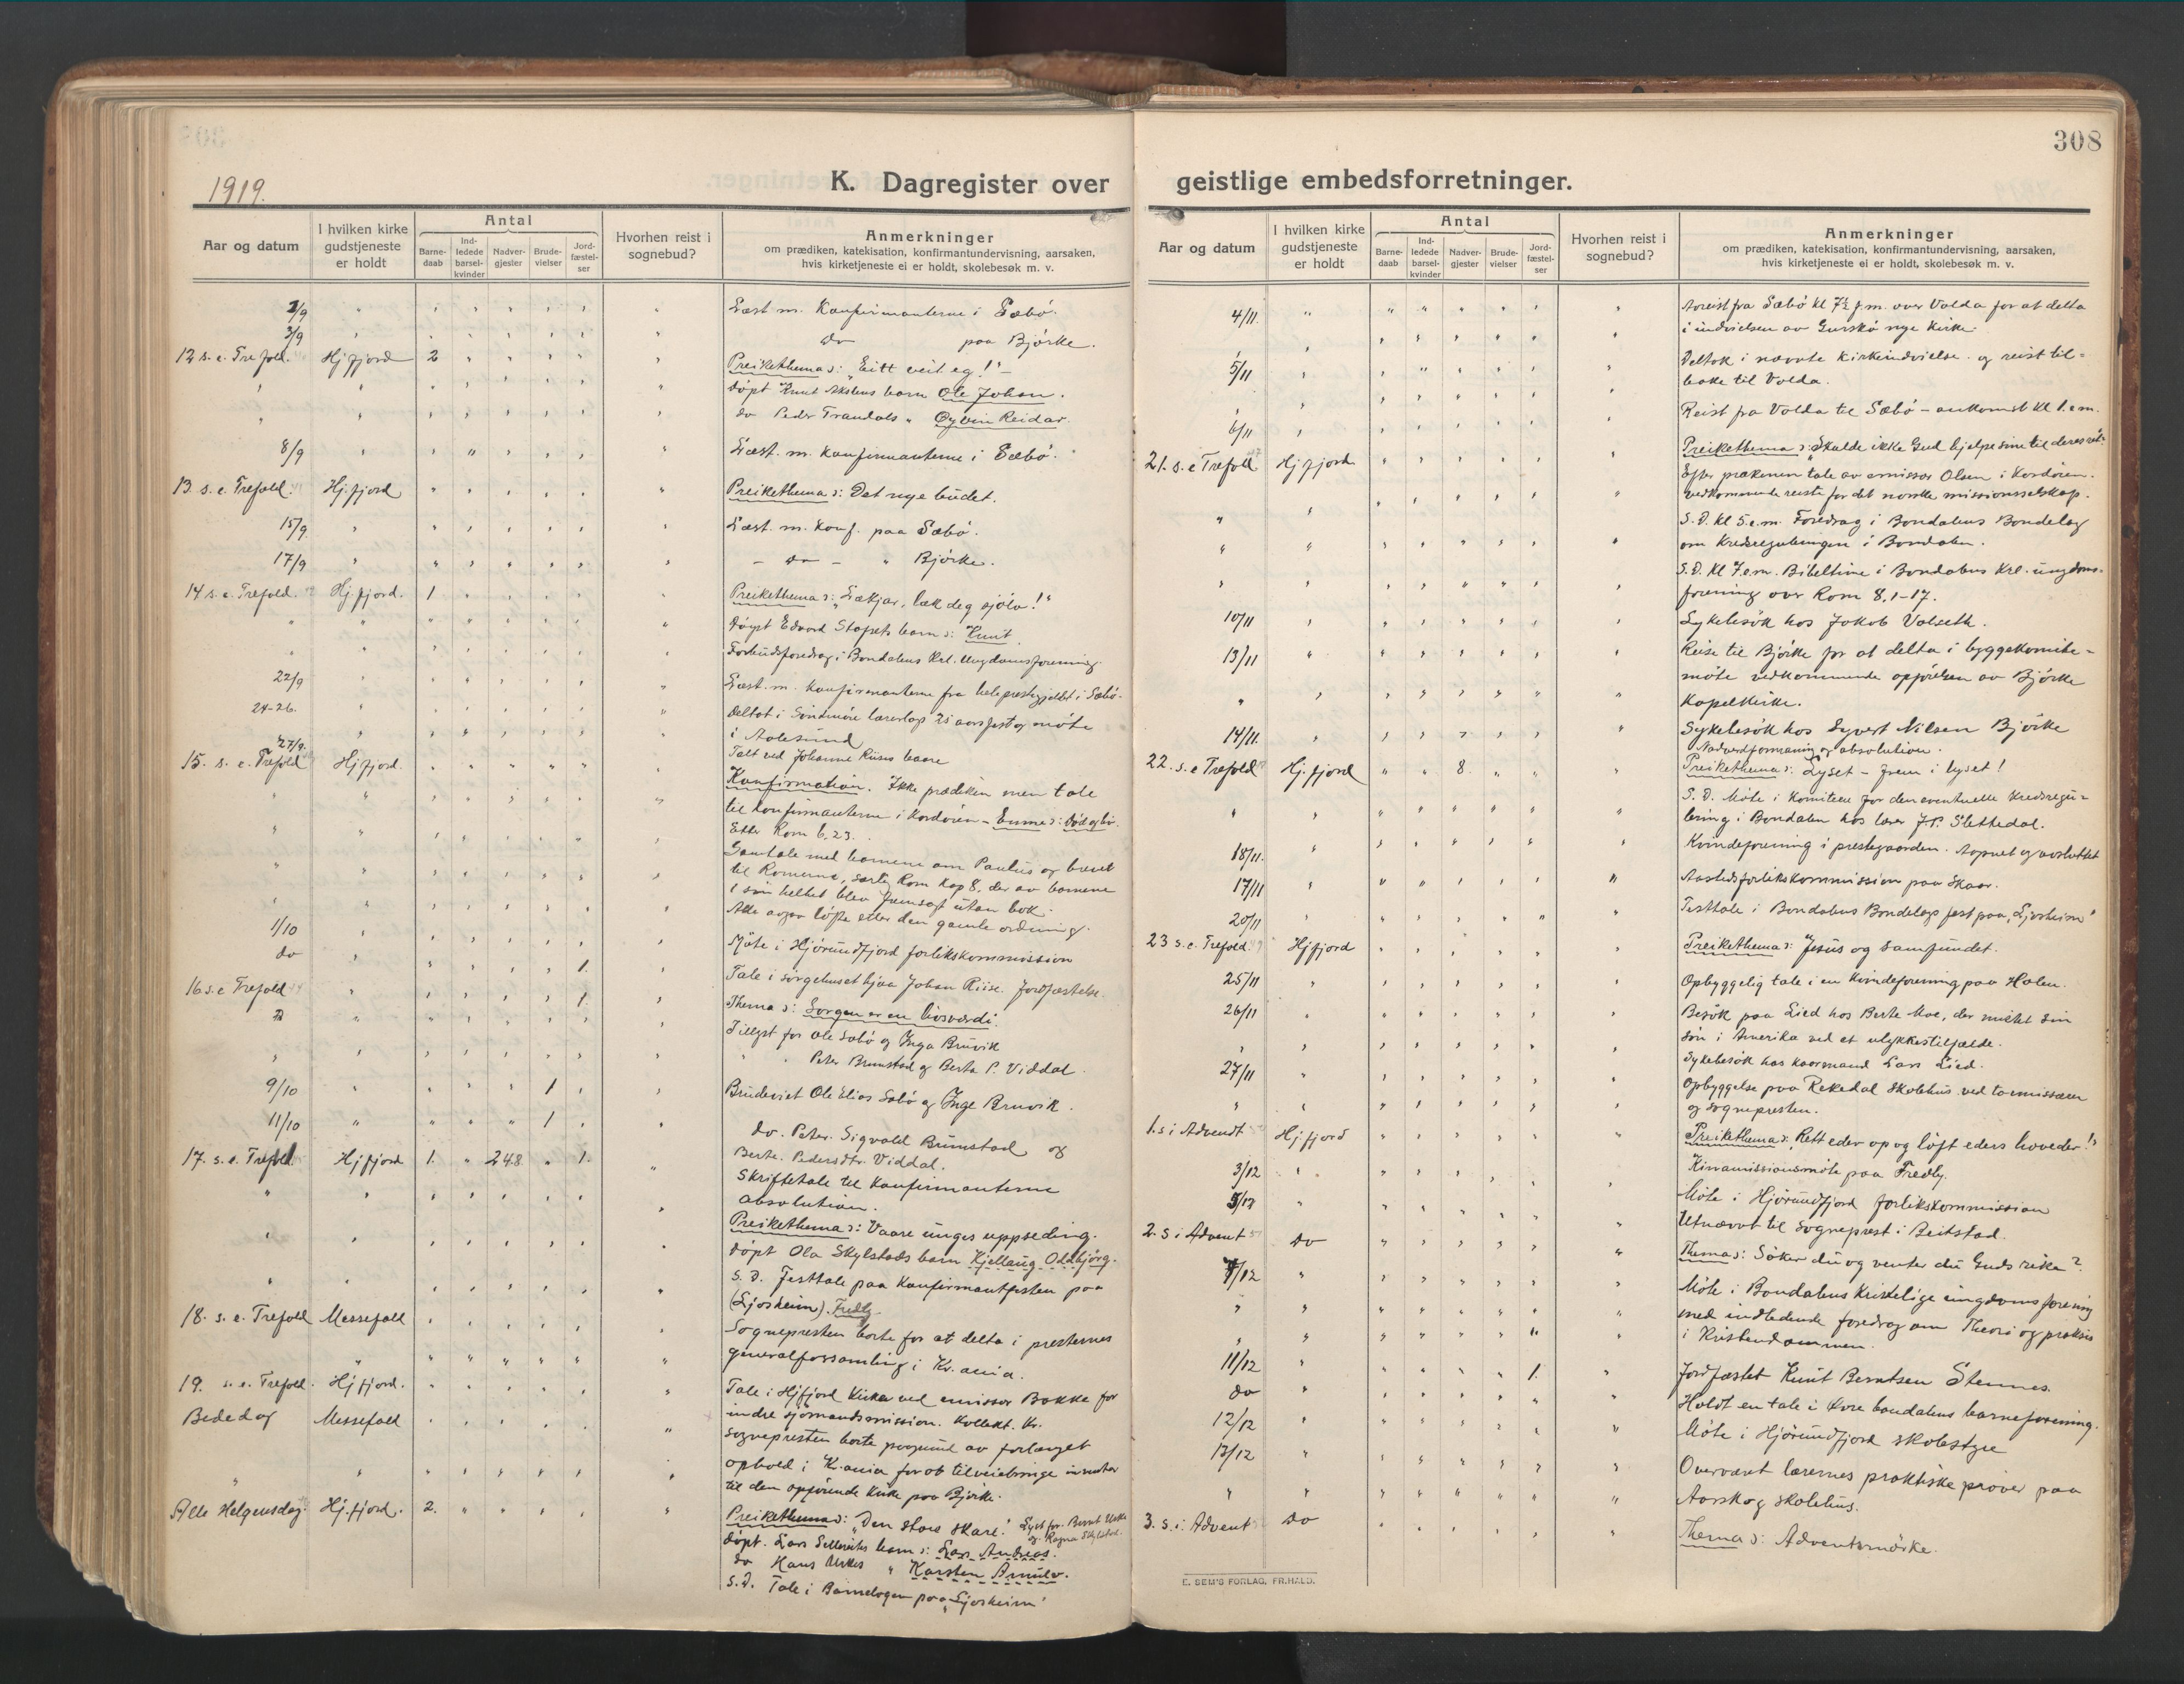 1919.
K. Dagregister over
Aar og datum
I hvilken kirke gudstjeneste er holdt
Antal
Barne-daab
Ind-ledede barsel-kvinder
Nadver-gjester
Brude-vielser
Jord-fæstel-ser
Hvorhen reist i sognebud?
Anmerkninger
om prædiken, katekisation, konfirmantundervisning, aarsaken,
hvis kirketjeneste ei er holdt, skolebesøk m. v.
2/9 Læst m. Konfirmanterne i Sæbö.
3/9 do paa Björke.
12 s. e. Trefold. Hj.fjord 2 Preikethema: "Eitt veit eg!"
Döpt Knut Akslens barn Ole Johan.
do Peder Trandals " Öyvin Reidar.
8/9 Læst. m. Konfirmanterne i Sæbö.
13 s. e. Trefold. Hj.fjord Preikethema: Det nye budet.
15/9 Læst. m. Konf. paa Sæbö.
17/9 - do - " Björke.
14 s. e. Trefold. Hj.fjord. 1 Preikethema: "Lækjar, læk deg sjölv!"
Döypt Edvard Stopets barn: Knut
Forbudsforedrag i Bondalens Krl. Ungdomsforening.
22/9 Læst. m. Konfirmanterne fra hele prestegjeldet i Sæbö.
24-26. Deltat i Söndmöre lærerlags 25 aars fest og möte
i Aalesund
27/9. Talt ved Johanne Riises baare
15. s. e. Trefold Hj.fjord. Konfirmation. Ikke prædiken men tale
til konfirmanterne i kordören - Emne: Död og liv.
Efter Rom 6.23.
Samtale med barnene om Paulus og brevet
til Romerne, særlig Rom Kap 8, der av barnene
i sin helhet blev fremsagt utan bok.
Alle avgav löfte etter den gamle ordning.
1/10 Möte i Hjörundfjord forlikskommission
do 1. Tale i sörgehuset hjaa Johan Riise. Jordfæstelse.
16 s. e. Trefold 1. Thema: Sorgen er en livsværdi.
Tillyst for Ole Sæbö og Inga Bruvik
" " Peter Brunstad og Berta P. Viddal.
9/10 1 Brudeviet Ole Elias Sæbö og Inge Bruvik.
11/10 1 do. Peter Sigvald Brunstad og
Berte Pedersdtr. Viddal.
17. s. e. Trefold Hj.fjord 1. 248. 1. Skriftetale til Konfirmanterne
Absolution.
Preikethema: Vaare unges uppseding.
Döpt Ola Skylstads barn Kjellaug Oddbjörg.
S. D. Festtale paa Konfirmantfesten paa
(Ljosheim). Fredly
18. s. e. Trefold Messefald Sognepresten borte for at delta i presternes
generalforsamling i Kr.ania.
19. s. e. Trefold. Hj.fjord. Tale i Hjfjord Kirke ved emissær Bakke for
indre sjömandsmission. Kollekt. Kr.
Bededag Messefald Sognepresten borte paagrund av forlænget
ophold i Kr.ania for at tilveiebringe
til den opförende Kirke paa Björke.
Alle Helgensdag. Hj.fjord. 2. Preikethema: "Den store skare." Lyst for Bernt Urke
og Ragna Skylstad.
Döpt. Lars barn: Lars Andreas.
do Hans Urkes " Karsten Arnulv.
S.D. Tale i Barnelogen paa "Ljosheim"
308
geistlige embedsforretninger.
Aar og datum
I hvilken kirke gudstjeneste er holdt
Antal
Barne-daab
Ind-ledede barsel-kvinder
Nadver-gjester
Brude-vielser
Jord-fæstel-ser
Hvorhen reist i sognebud?
Anmerkninger
om prædiken, katekisation, konfirmantundervisning, aarsaken,
hvis kirketjeneste ei er holdt, skolebesøk m. v.
4/11. Avreist fra Sæbö kl 7½ f.m. over Volda for at delta
i indvielsen av Gurskö nye Kirke.
5/11 Deltok i nævnte Kirkeindvielse og reist til=
bake til Volda.
6/11 Reist fra Volda til Sæbö - ankomst kl 1. e.m.
21. s. e Trefold Hj.fjord Preikethema: Skulde ikke Gud hjelpe sine til deres ret.
Efter prækenen tale av emissær Olsen i Kordören.
vedkommende reiste for det norske missionsselskap.
S. D. Kl 5. e.m. Foredrag i Bondalens Bondelag
om Kredsreguleringen i Bondalen.
S. D. Kl 7. e.m. Bibeltime i Bondalens Krl. ungdoms-
forening over Rom 8, 1-17.
10/11 Sykebesök hos Jakob Valseth.
13/11 Reise til Björke for at delta i byggekomite-
möte vedkommende opförelsen av Björke
Kapelkirke.
14/11. Sykebesök hos Syvert Nilsen Björke
Nadverdformaning og absolution.
22. s. e Trefold Hj.fjord 8. Preikethema: Lyset - frem i lyset!
S. D. Möte i Komiteen for den eventuelle Kredsregu-
lering i Bondalen hos lærer J.P. Slettedal.
18/11. Kvindeforening i prestegaarden. Aapnet og avsluttet
17/11 Aastedsforlikskommission paa Skaar.
20/11 Festtale i Bondalens Bondelags fest paa "Ljosheim"
23 s. e. Trefold. Hjfjord Preikethema: "Jesus og samfundet.
25/11 Opbyggelig tale i en Kvindeforening paa Holen.
26/11 Besök paa Lied hos Berte Moe, der mistet sin
sön i Amerika ved et ulykkestilfælde.
Sykebesök hos kaarmand Lars Lied.
27/11 Opbyggelse paa Rekedal skolehus ved to emissærer
og sognepresten.
1. s i Advendt Hj.fjord Preikethema: "Rett eder op og löft eders hoveder!"
3/12 Kinamissionsmöte paa Fredly.
5/12 Möte i Hjörundfjord forlikskommission
Utnævnt til sogneprest i Beitstad.
2. s i Advent do Thema: Söker du og venter du Guds rike?
7/12 Möte i Bondalens Kristelige ungdomsforening
med indledende foredrag om Theori og praksis
i Kristendommen.
11/12 1. Jordfæstet Knut Berntsen Stennes.
do Holdt en tale i Övre bondalens barneforening.
12/12 Möte i Hjörundfjord skolestyre
13/12 Overværet lærernes praktiske pröver paa
Aarskog skolehus.
3. s. i. Advent do Thema: Adventsmörke.
E. SEM'S FORLAG, FR.HALD.